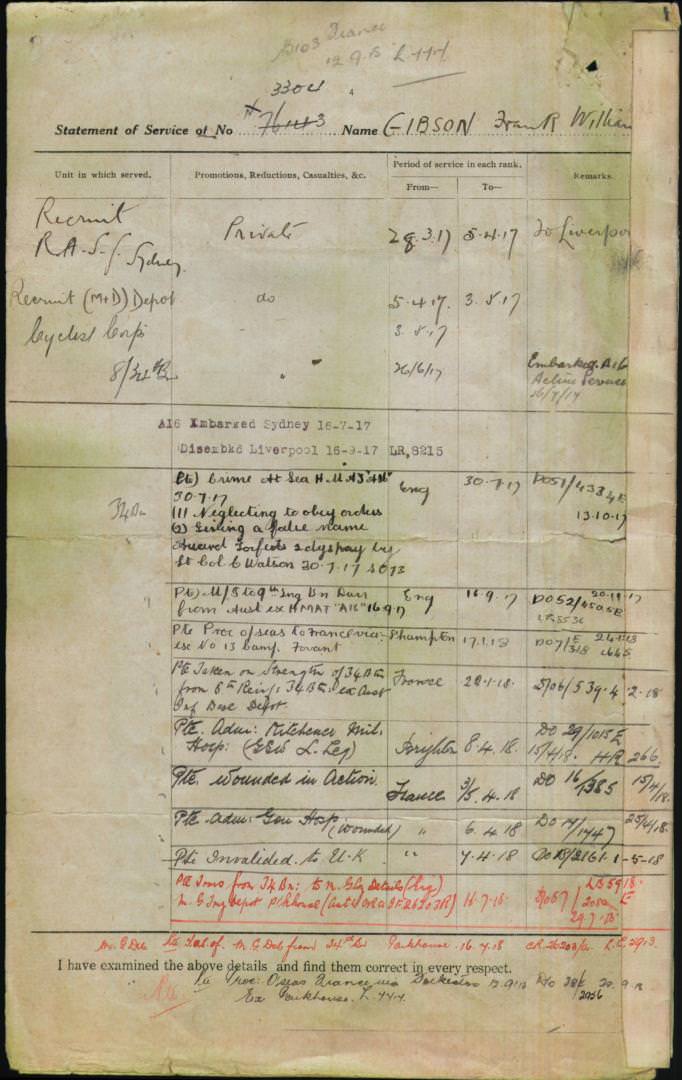 5103 France
12.9.18 L.444
3304
Statement of Service of No 76443 Name GIBSON Frank William
Unit in which served. Promotions, Reductions, Casualties, &c. Period of service in each rank. Remarks.
From— To—
Recruit Private 29.3.17 5.4.17 To Liverpoo
R.A.S.C Sydney
Recruit (M+D) Depot do 5.4.17. 3.5.17
Cyclist Corps 3.5.17
8/34th Bn " 26/6/17 Embarked A16
Active Service
16/7/17
A16 Embarked Sydney 16-7-17
Disembkd Liverpool 16-9-17 LR,8215
34 Bn Pte) Crime At Sea H.M.A.T "A16" Eng 30.7.17 DO51/4334E
30.7.17 13.10.17
(1) Neglecting to obey orders
(2) Giving a false name
Award Forfeits 2 dys pay by
Lt Col C Watson 30.7.17
Pte) M/I to 9th Tng Bn Durr Eng 16.9.17 DO52/4505E 20.11.17
from Aust ex HMAT "A16" 16.9.17
Pte Proc o/seas to France via S'hampton 17.1.18 DO7/E
ex No 13 Camp. Fovant
Pte Taken on Strength of 34 Btn France 22.1.18. 5/06/539.4.2.18
from 8th Reinfs 34 Btn. ex Aust
Inf Base Depot.
Pte. Adm: Kitchener Mil. Brighton 8.4.18. DO 29/1015 E
Hosp: (GSW L. Leg) 15/4/18. HR 266
Pte. Wounded in Action. France 3/5.4.18 DO 16/1385 15/4/18.
Pte Adm: Gen Hosp (Wounded) " 6.4.18 DO 17/1747 25/4/18.
Pte Invalided to U.K. " 7.4.18 DO 18/2161 1-5-18
Pte Trans from 34 Bn: to M. G. Coy Details (Eng)
M. G Tng Depot P'khouse 16.7.18
29.7.18
M.G. Dets Pte from 34th Bn Parkhouse. 16.7.18 L.E. 2913.
I have examined the above details and find them correct in every respect.
Pte Proc: O'seas France via Folkestone 12.9.18 D/O 38E/2036 20.9.18
Ex Parkhouse. L.444.